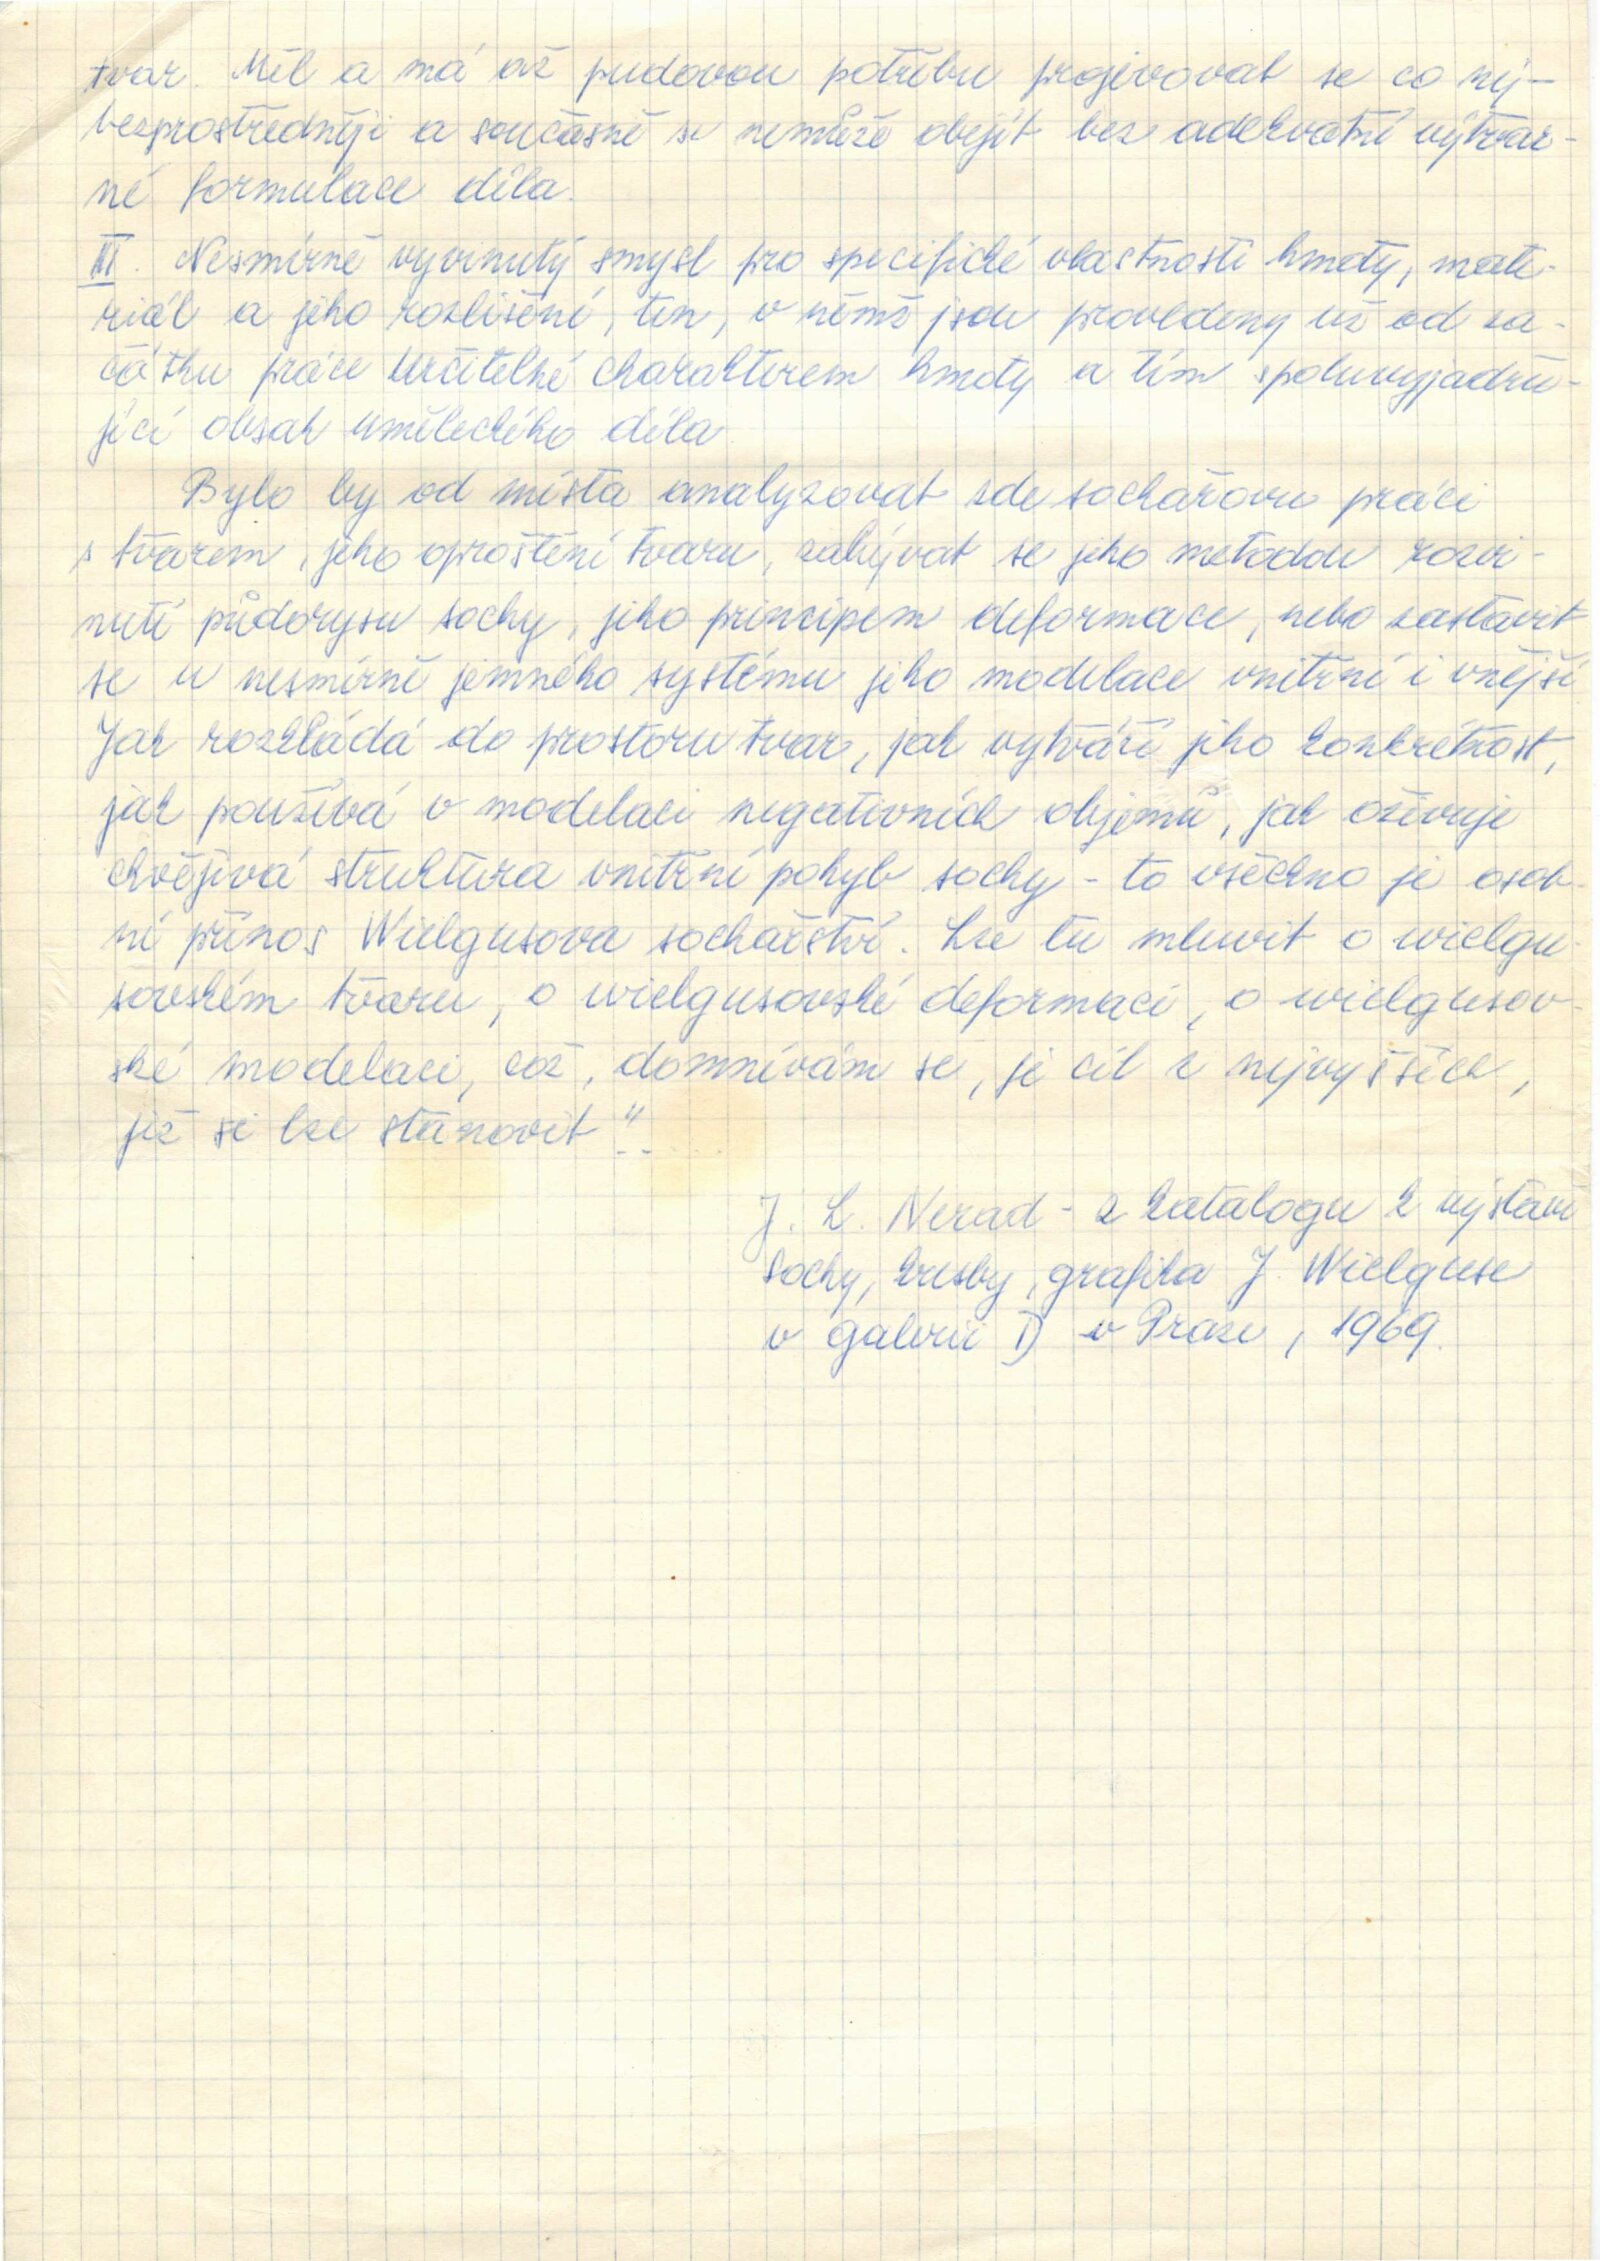 tvar. Měl a má až pudovou potřebu projevovat se co nej-
bezprostředněji a současně se nemůže obejít bez adekvatní výtvar-
né formulace díla.
III. Nesmírně vyvinutý smysl pro specifické vlastnosti hmoty, mate-
riál a jeho rozlišení, ten, v němž jsou provedeny už od za-
čátku práce určitelné charakterem hmoty a tím spoluvyjadřu-
jící obsah uměleckého díla
Bylo by od místa analyzovat zde sochařovu práci
s tvarem, jeho oproštění tvaru, zabývat se jeho metodou rozvi-
nutí půdorysu sochy, jeho principem deformace, nebo zastavit
se u nesmírně jemného systému jeho modelace vnitřní i vnější
Jak rozkládá do prostoru tvar, jak vytváří jeho konkrétnost,
jak používá v modelaci negativních objemů, jak oživuje
chvějivá struktura vnitřní pohyb sochy - to všechno je osob-
ní přínos Wielgusova sochařství. Lze tu mluvit o wielgu-
sovském tvaru, o wielgusovské deformaci, o wielgusov-
ské modelaci, což, domnívám se, je cíl z nejvyšších,
jež si lze stanovit"
J. L. Nerad - z katalogu k výstavě
sochy, kresby, grafika J. Wielguse
v galerii D v Praze, 1969.